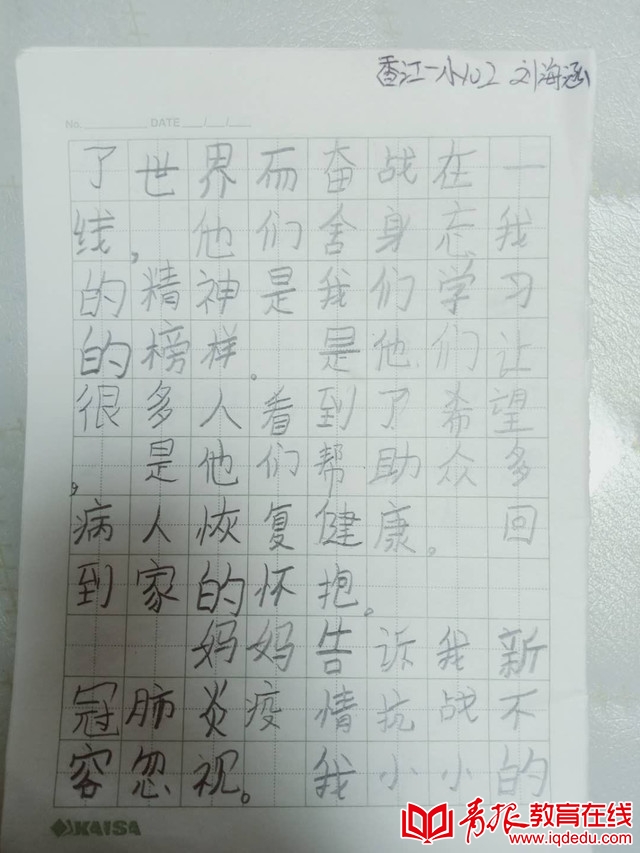 香江一小102 刘海涵
No. DATE / /
了世界而奋战在一
线，他们舍身忘我
的精神是我们学习
的榜样。是他们让
很多人看到了希望
，是他们帮助众多
病人恢复健康。回
到家的怀抱。
妈妈告诉我新
冠肺炎疫情抗战不
容忽视。我小小的
KAISA
青报教育在线
www.iqdedu.com